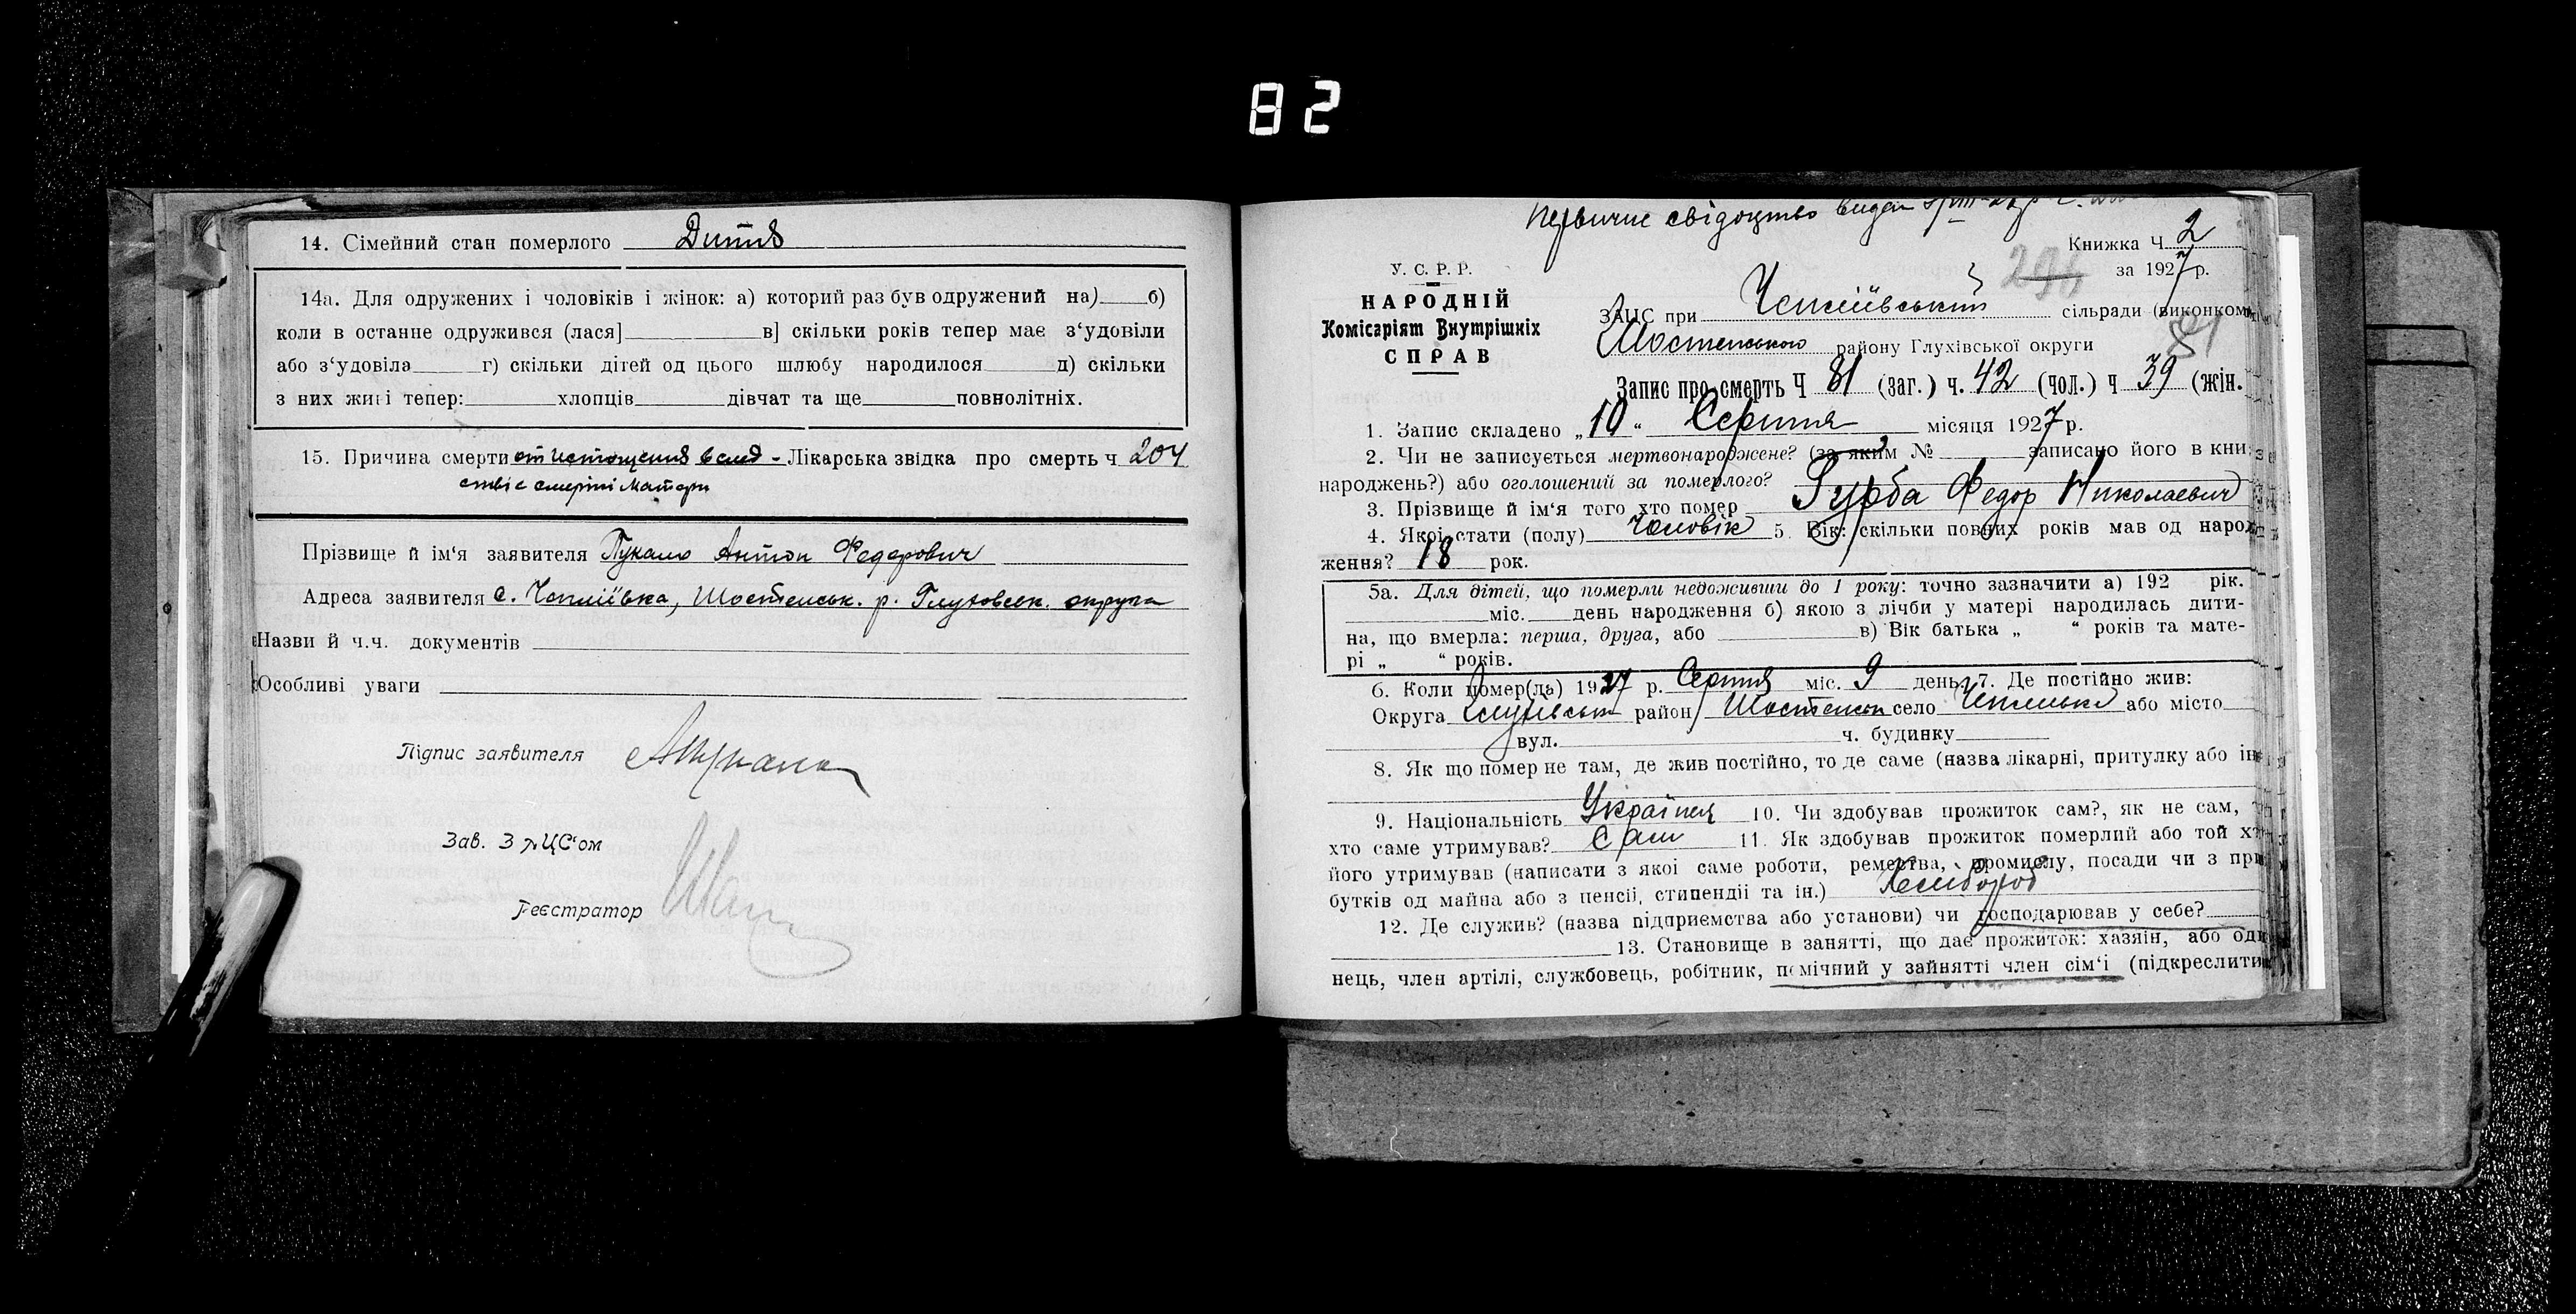 82
14. Сімейний стан померлого Дитя
14а. Для одружених і чоловіків і жінок: а) которий раз був одружений на) б)
коли в останнє одружився (лася] в] скільки років тепер має з‘удовіли
або з‘удовіла г) скільки дітей од цього шлюбу народилося д) скільки
з них живі тепер: хлопців дівчат та ще повнолітніх.
15. Причина смерти от истощения вслед- Лікарська звідка про смерть ч 204
ствіе смерті матери
Прізвище й ім‘я заявителя Пукало Антон Федорович
Адреса заявителя с. Чепліївка, Шостенськ. р. Глуховск. округа
Назви й ч.ч. документів
Особливі уваги
Підпис заявителя
Зав. ЗАЦС‘ом
Реєстратор
Первичне свідоцтво видан
Книжка Ч 2
У. С. Р. Р. за 1927 р.
НАРОДНІЙ
Комісаріят Внутрішніх
СПРАВ
ЗАЦС при Чепліївський сільради (виконком
Шостенського району Глухівської округи
81
Запис про смерть Ч 81 (заг.) ч. 42 (чол.) ч 39 (жін.
1. Запис складено „10“ Серпня місяця 1927 р.
2. Чи не записується мертвонароджене? (за яким № записано його в кни:
народжень?) або оголошений за померлого?
3. Прізвище й ім‘я того хто помер Гурба Федор Николаевич
4. Якої стати (полу) Чоловік 5. Вік: скільки повних років мав од народ
ження? 18 рок.
5а. Для дітей, що померли недоживши до 1 року: точно зазначити а) 192 рік.
міс. день народження б) якою з лічби у матері народилась дити-
на, що вмерла: перша, друга, або в) Вік батька „ “ років та мате-
рі „ “ років.
6. Коли помер(ла) 1927 р. Серпня міс. 9 день 7. Де постійно жив:
Округа Глухівськ район Шостенськ село або місто
вул. ч. будинку
8. Як що помер не там, де жив постійно, то де саме (назва лікарні, притулку або ін
9. Національність Українец 10. Чи здобував прожиток сам?, як не сам,
хто саме утримував? Сам 11. Як здобував прожиток померлий або той х
його утримував (написати з якої саме роботи, ремества, промислу, посади чи з при
бутків од майна або з пенсії, стипендії та ін.) Хлібороб
12. Де служив? (назва підприємства або установи) чи господарював у себе?
13. Становище в занятті, що дає прожиток: хазяїн, або оди
нець, член артілі, службовець, робітник, помічний у зайнятті член сім‘ї (підкреслити